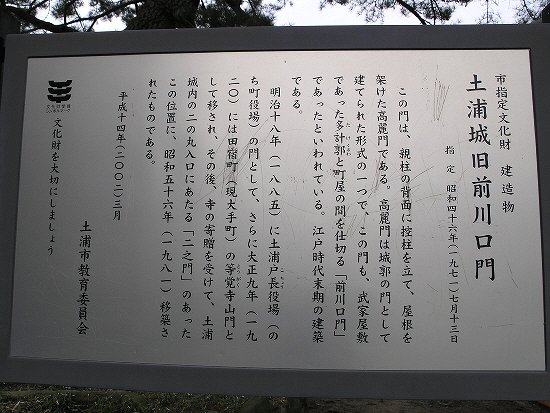 市指定文化財　建造物
土浦城旧前川口門
指定　昭和四十六年(一九七一)七月十三日
この門は、親柱の背面に控柱を立て、屋根を
架けた高麗門である。高麗門は城郭の門として
建てられた形式の一つで、この門も、武家屋敷
であった多計郭と町屋の間を仕切る「前川口門」
であったといわれている。江戸時代末期の建築
である。
明治十八年(一八八五)に土浦戸長役場(の
ち町役場)の門として、さらに大正九年(一九
二〇)には田宿町(現大手町)の等覚寺山門と
して移され、その後、寺の寄贈を受けて、土浦
城内の二の丸入口にあたる「二之門」のあった
この位置に、昭和五十六年(一九八一)移築さ
れたものである。
平成十四年(二〇〇二)三月
土浦市教育委員会
文化財を大切にしましょう